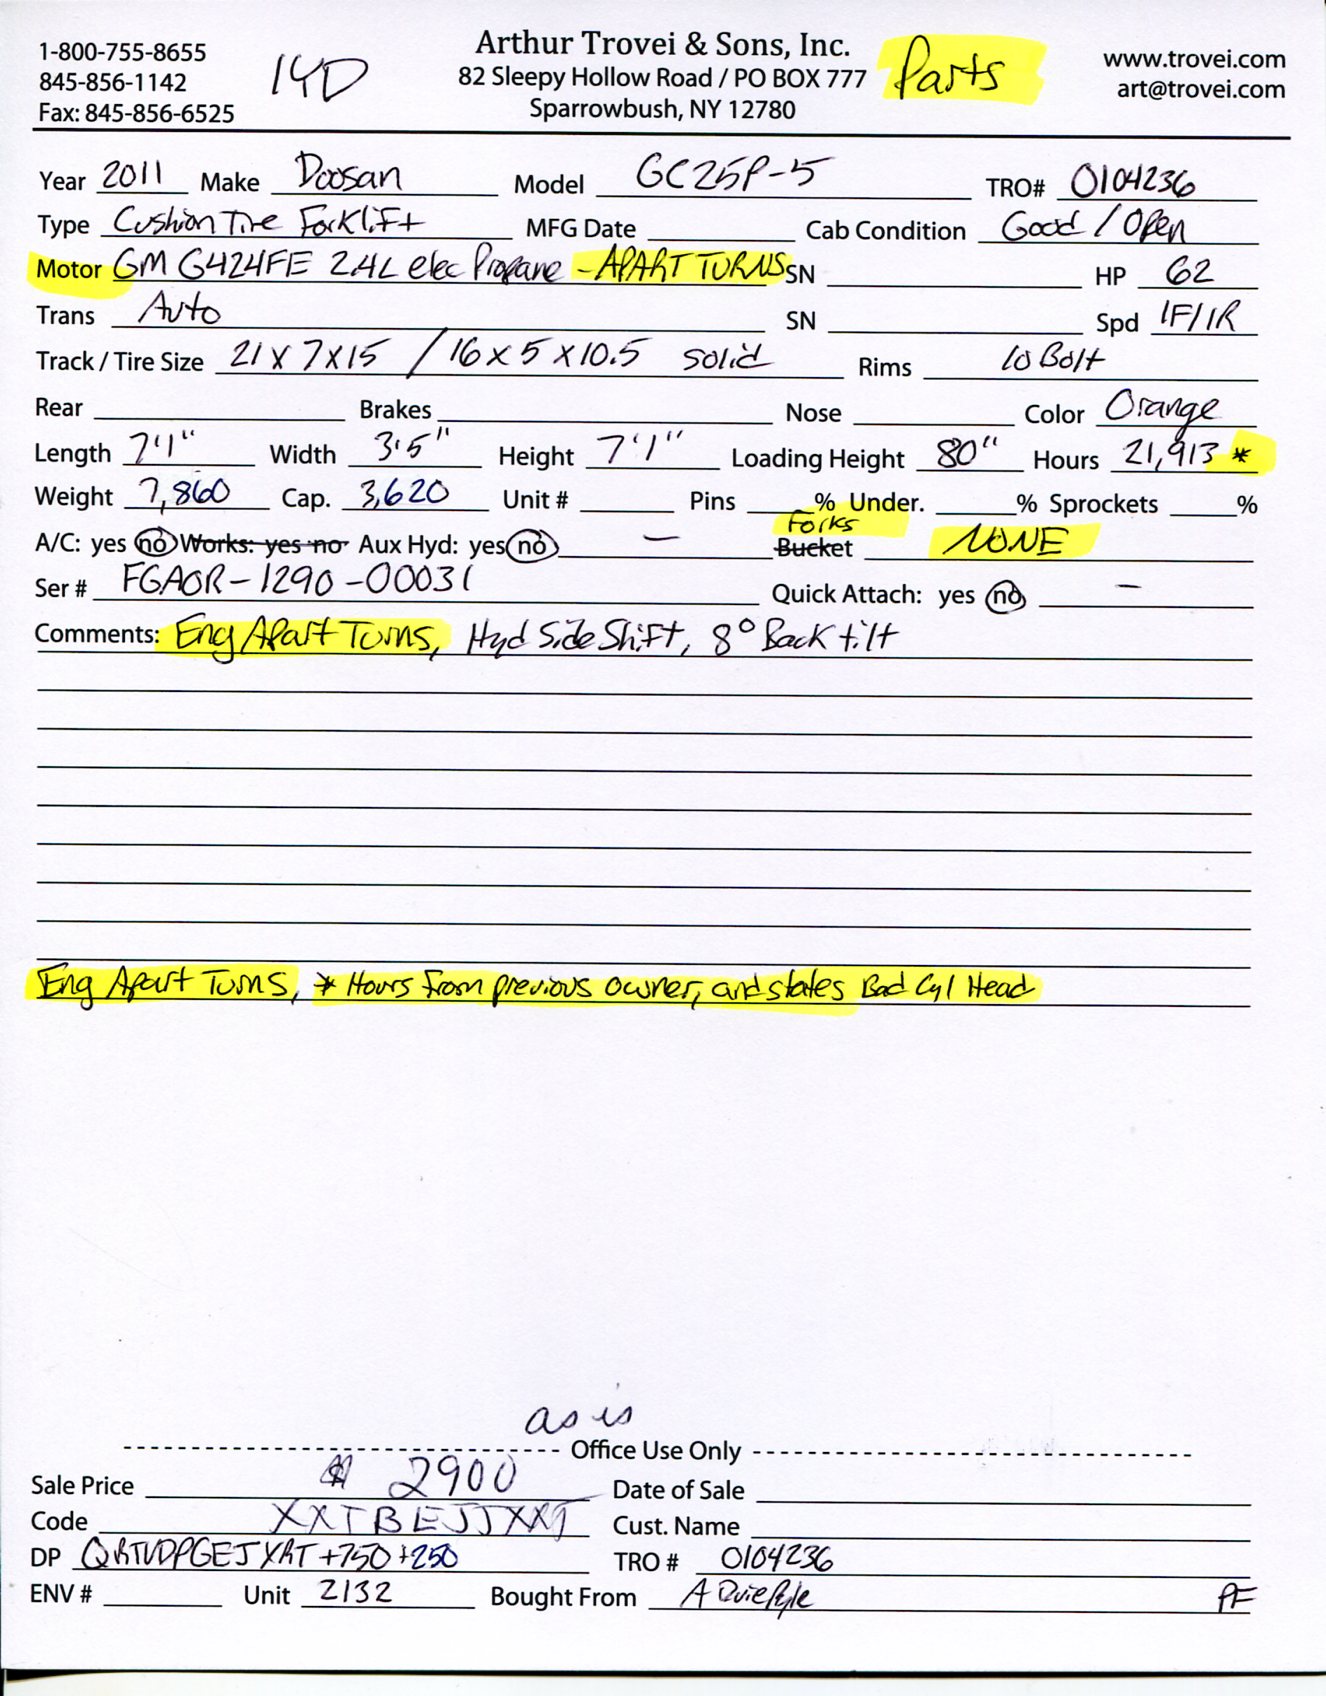 1-800-755-8655
845-856-1142
Fax: 845-856-6525
14D
Arthur Trovei & Sons, Inc.
82 Sleepy Hollow Road / PO BOX 777
Sparrowbush, NY 12780
Parts
www.trovei.com
art@trovei.com
Year 2011 Make Doosan Model GC25P-5 TRO# 0104236
Type Cushion Tire Forklift MFG Date Cab Condition Good / Open
Motor GM G424FE 2.4L elec Propane - APART TURNS SN HP 62
Trans Auto SN Spd 1F/1R
Track / Tire Size 21 x 7 x 15 / 16 x 5 x 10.5 solid Rims 10 Bolt
Rear Brakes Nose Color Orange
Length 7'1" Width 3'5" Height 7'1" Loading Height 80" Hours 21,913 *
Weight 7,860 Cap. 3,620 Unit # Pins % Under. % Sprockets %
A/C: yes no Works: yes no Aux Hyd: yes no — Forks Bucket NONE
Ser # FGA0R-1290-00031 Quick Attach: yes no —
Comments: Eng Apart Turns, Hyd Side Shift, 8° Back tilt
Eng Apart Turns, * Hours from previous owner, and states Bad Cyl Head
as is
Office Use Only
Sale Price $ 2900 Date of Sale
Code XXTBEJJXRT Cust. Name
DP QRTVDPGEJXRT +750 +250 TRO # 0104236
ENV # Unit 2132 Bought From A PF